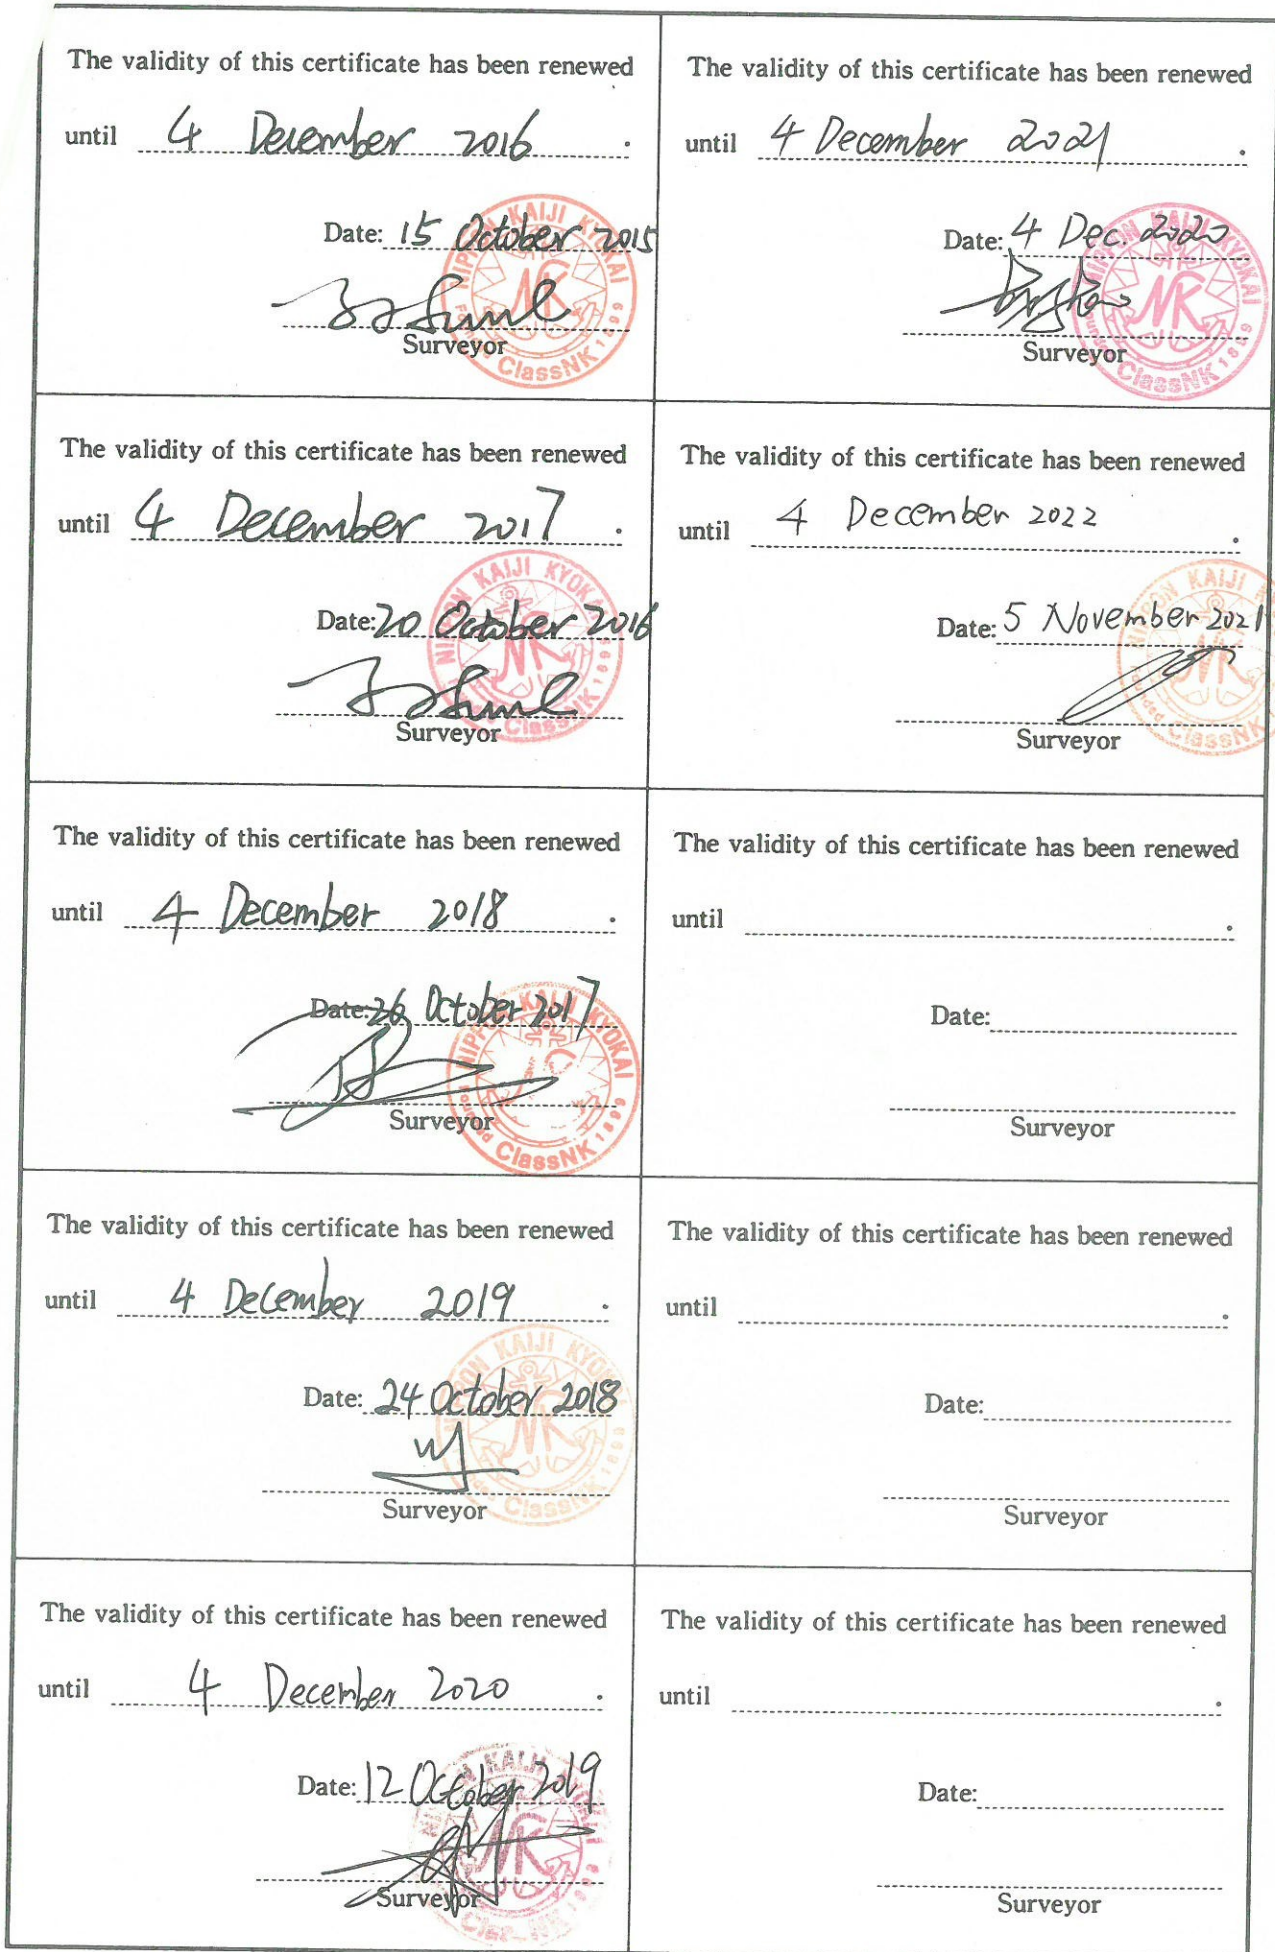 The validity of this certificate has been renewed
until 4 December 2016 .
Date: 15 October 2015
Surveyor
NIPPON KAIJI KYOKAI
Founded ClassNK 1899
NK
The validity of this certificate has been renewed
until 4 December 2017 .
Date: 20 October 2016
Surveyor
NIPPON KAIJI KYOKAI
ClassNK 1899
NK
The validity of this certificate has been renewed
until 4 December 2018 .
Date: 26 October 2017
Surveyor
NIPPON KAIJI KYOKAI
Founded ClassNK 1899
The validity of this certificate has been renewed
until 4 December 2019 .
Date: 24 October 2018
Surveyor
NIPPON KAIJI KYOKAI
ClassNK 1899
NK
The validity of this certificate has been renewed
until 4 December 2020 .
Date: 12 October 2019
Surveyor
NK
The validity of this certificate has been renewed
until 4 December 2021 .
Date: 4 Dec. 2020
Surveyor
NIPPON KAIJI KYOKAI
Founded ClassNK 1899
NK
The validity of this certificate has been renewed
until 4 December 2022 .
Date: 5 November 2021
Surveyor
NIPPON KAIJI
ClassNK
NK
The validity of this certificate has been renewed
until .
Date:
Surveyor
The validity of this certificate has been renewed
until .
Date:
Surveyor
The validity of this certificate has been renewed
until .
Date:
Surveyor